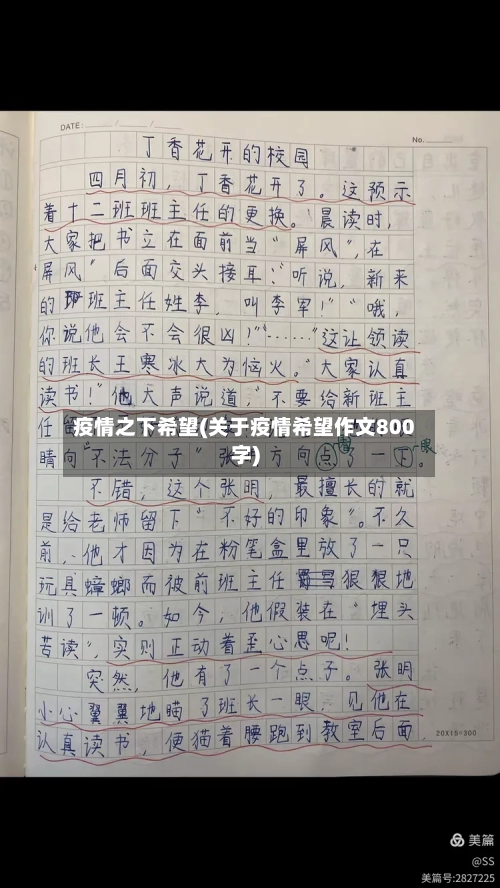 DATE: / /
No.
丁香花开的校园
四月初，丁香花开了。这预示
着十二班班主任的更换。晨读时，
大家把书立在面前当“屏风”，在
屏风”后面交头接耳：“听说，新来
的班主任姓李，叫李军！”“哦，
你说他会不会很凶！”“……”这让领读
的班长王寒冰大为恼火。“大家认真
读书！”他大声说道，“不要给新班主
任
疫情之下希望(关于疫情希望作文800
字)
睛向“不法分子”张 方向点了一下。
一眼
不错，这个张明，最擅长的就
是给老师留下“不好的印象”。不久
前，他才因为在粉笔盒里放了一只
玩具蟑螂而被前班主任 狠狠地
训了一顿。如今，他假装在“埋头
苦读”，实则正动着歪心思呢！
突然，他有了一个点子。张明
小心翼翼地瞄了班长一眼，见他在
认真读书，便猫着腰跑到教室后面，
20X15=300
美篇
@SS
美篇号:2827225